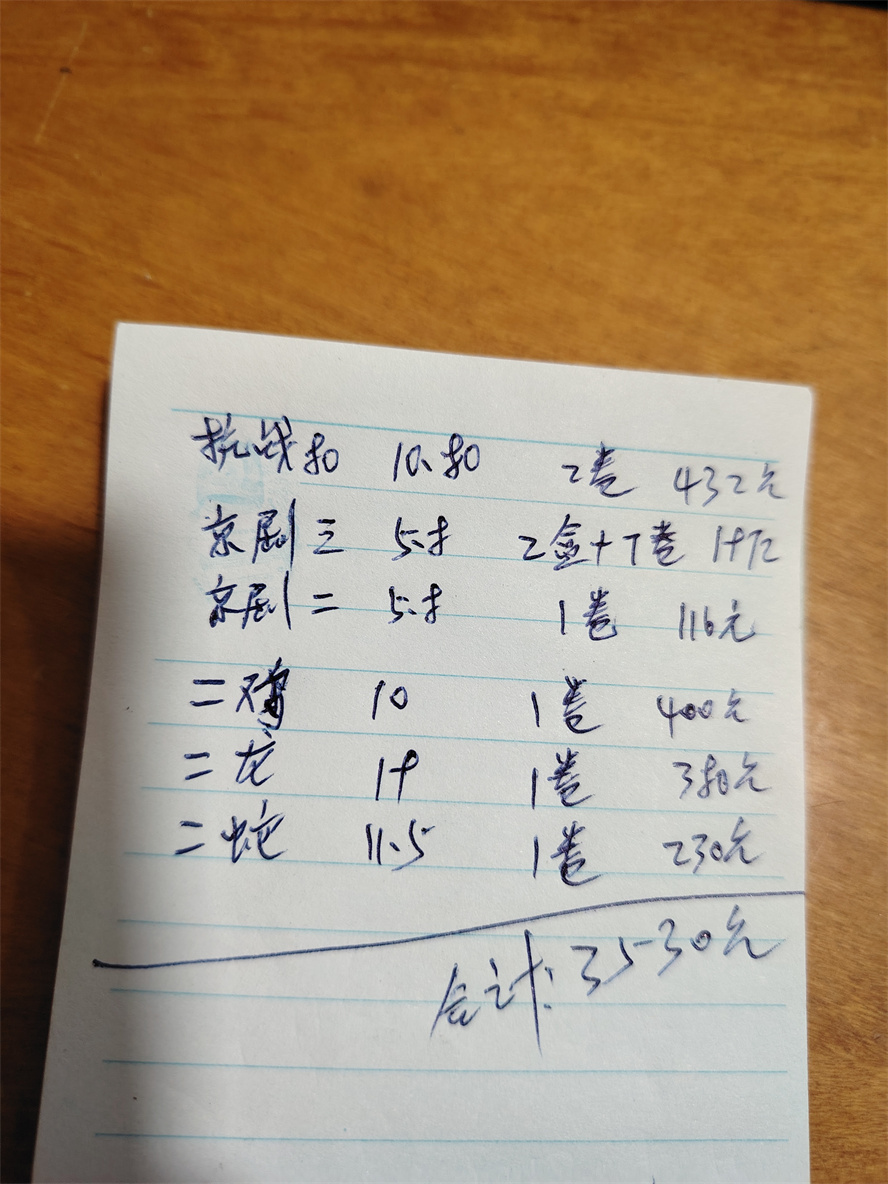 抗战80 10.80 2卷 432元
京剧三 5.8 2盒+7卷 1972
京剧二 5.8 1卷 116元
二鸡 10 1卷 400元
二龙 19 1卷 380元
二蛇 11.5 1卷 230元
合计: 3530元